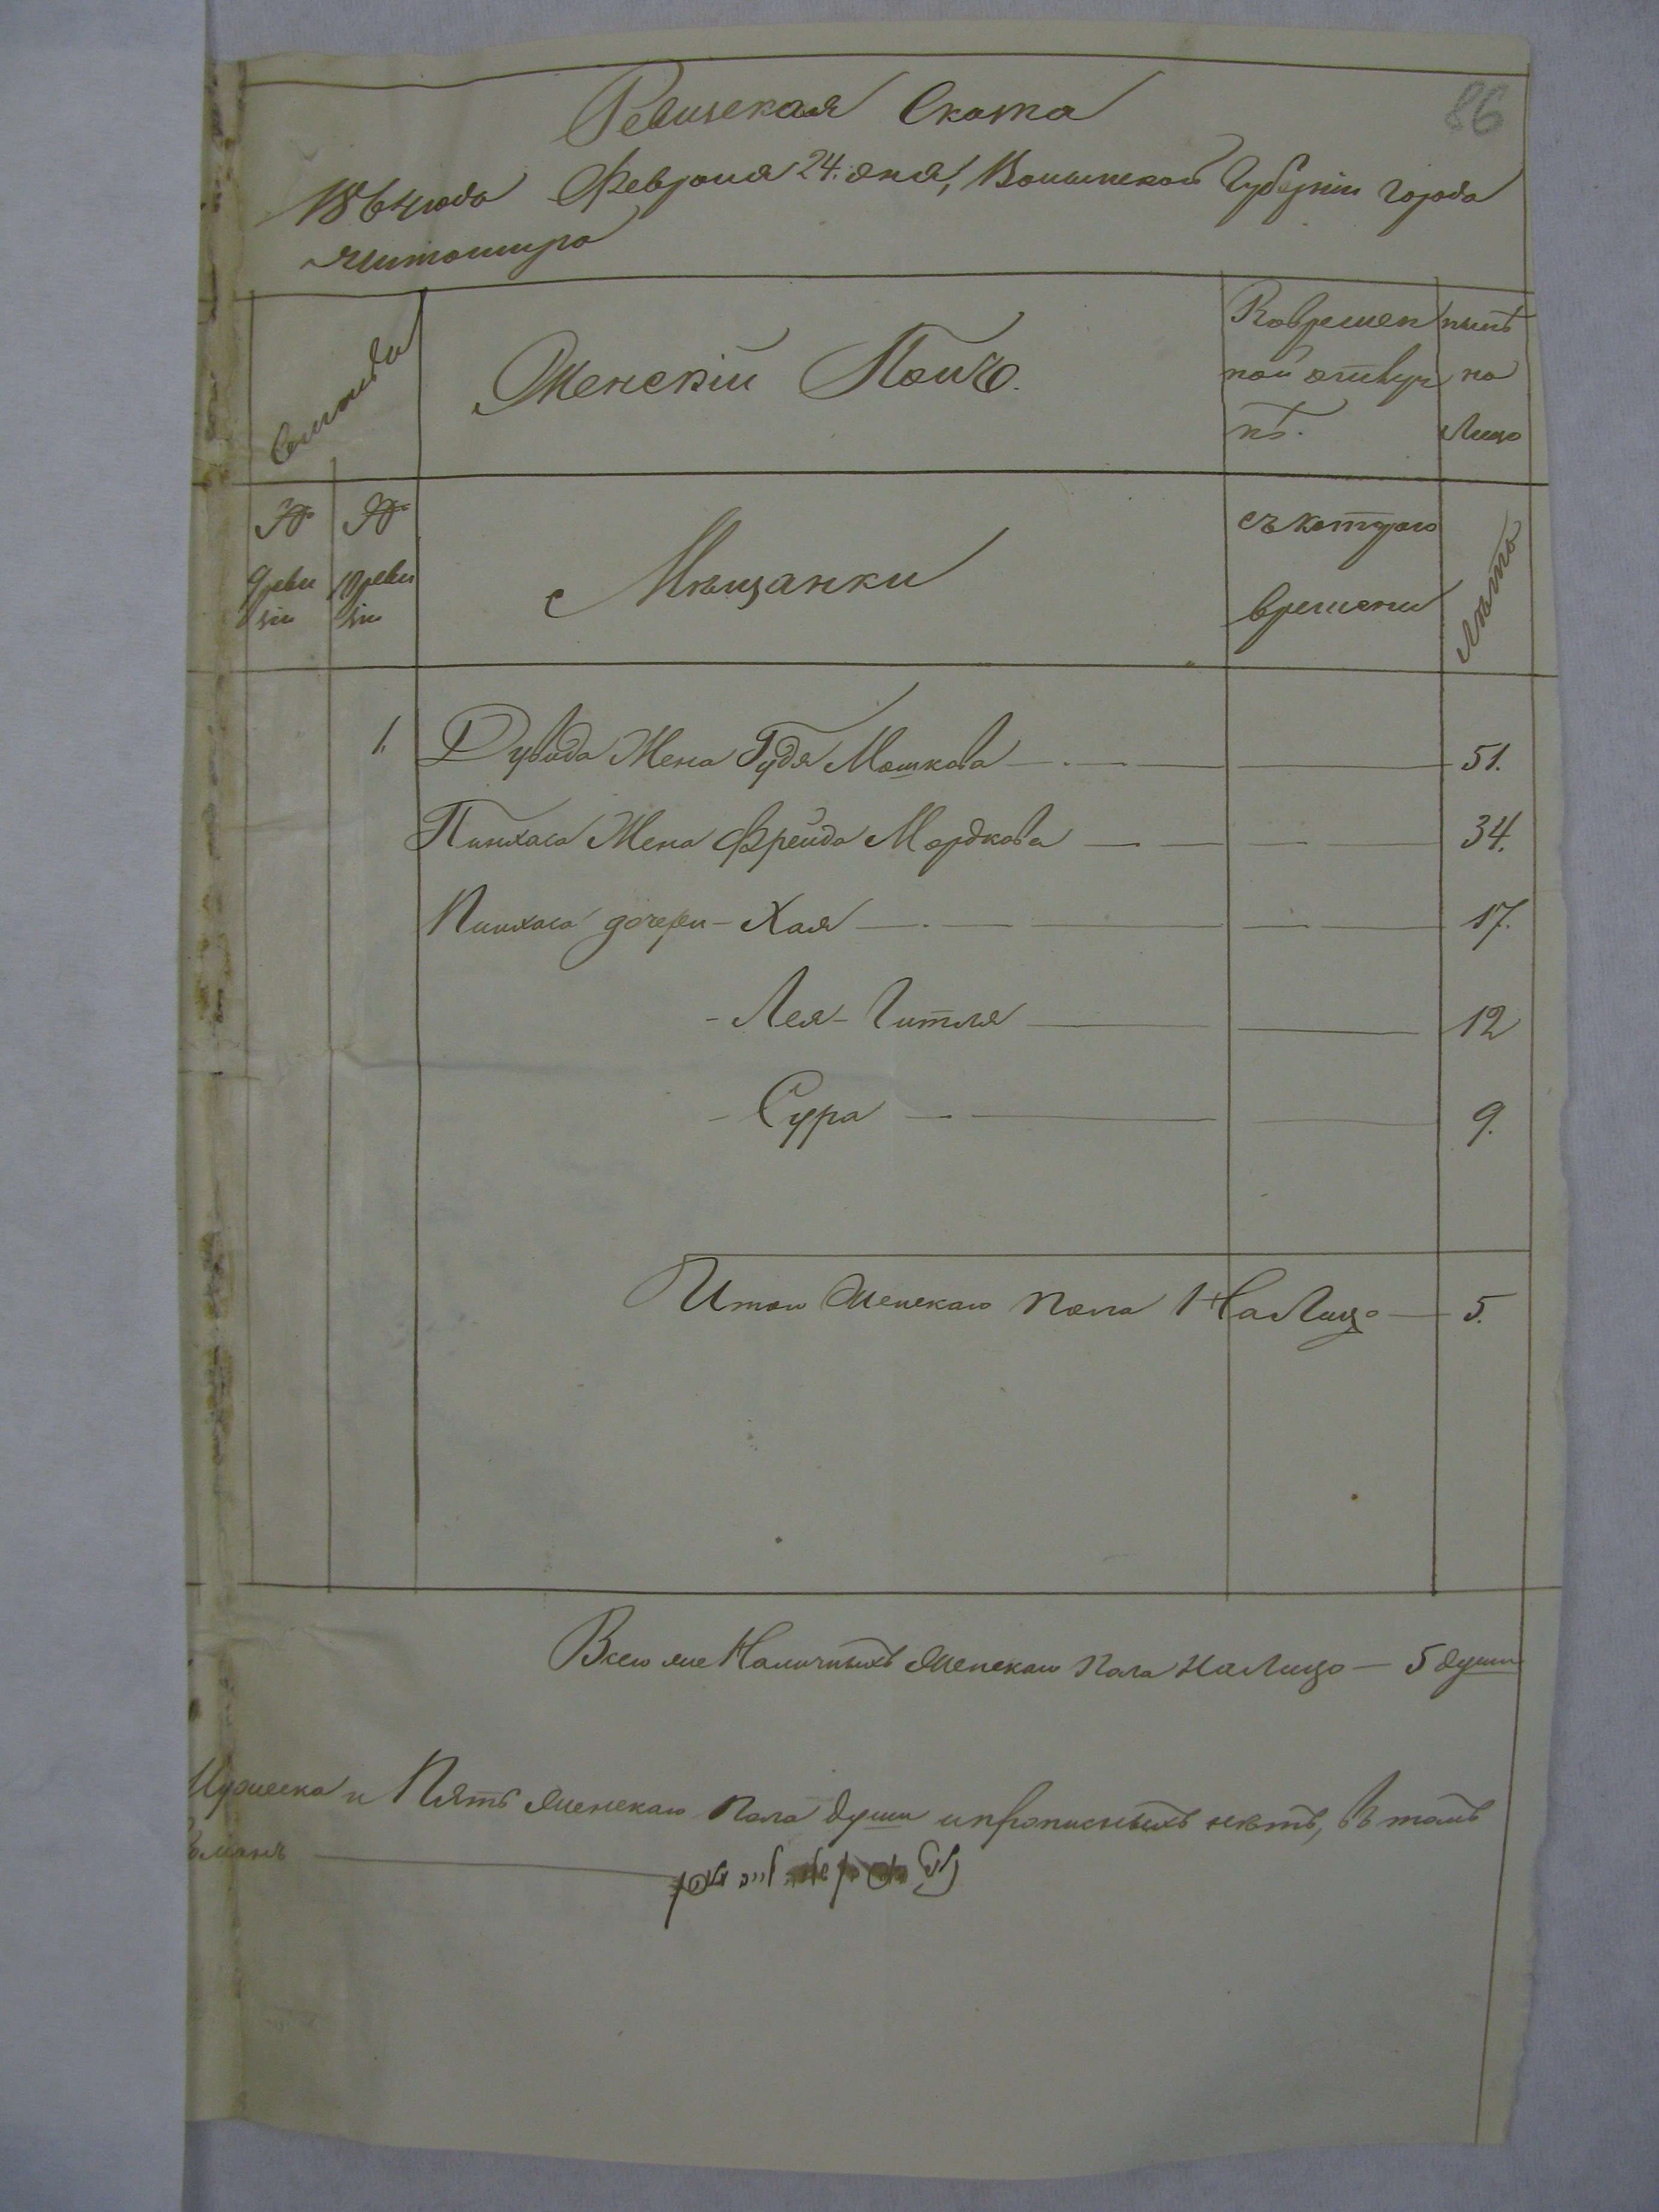 Ревизская Скаска
86
1864 года Февраля 24. дня, Волынской Губерніи города
Житомира
Семейства
Женскій Полъ.
Во времен
ной отлуч
кѣ.
нынѣ
на
Лицо
№
9 реви
зіи
№
10 реви
зіи
Мѣщанки
съ котораго
времени
Лѣта
1. Дувида Жена Гудя Мошкова 51.
Пинхаса Жена Фрейда Мордкова 34.
Пинхаса дочери - Хая 17.
- Лея - Гитля 12
- Сура 9.
Итого Женскаго пола На Лицо 5.
Всего же Наличныхъ женскаго пола на Лицо — 5 души
Мужеска и Пять женскаго пола души и прописныхъ нѣтъ, въ томъ